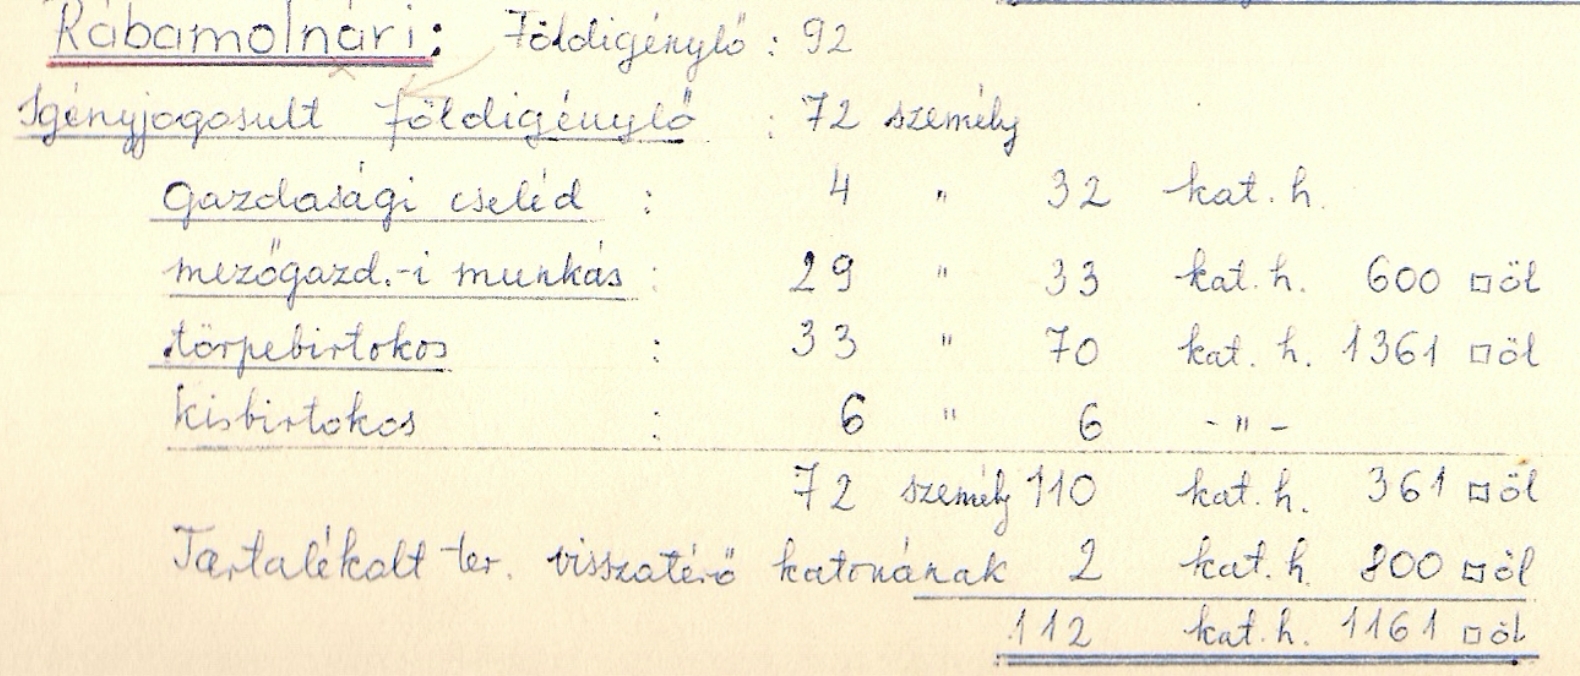 Rábamolnári: Földigénylő : 92
Igényjogosult földigénylő : 72 személy
gazdasági cseléd : 4 " 32 kat. h.
mezőgazd.-i munkás : 29 " 33 kat. h. 600 □öl
törpebirtokos : 33 " 70 kat. h. 1361 □öl
kisbirtokos : 6 " 6 -"-
72 személy 110 kat. h. 361 □öl
Tartalékolt ter. visszatérő katonának 2 kat. h. 800 □öl
112 kat. h. 1161 □öl